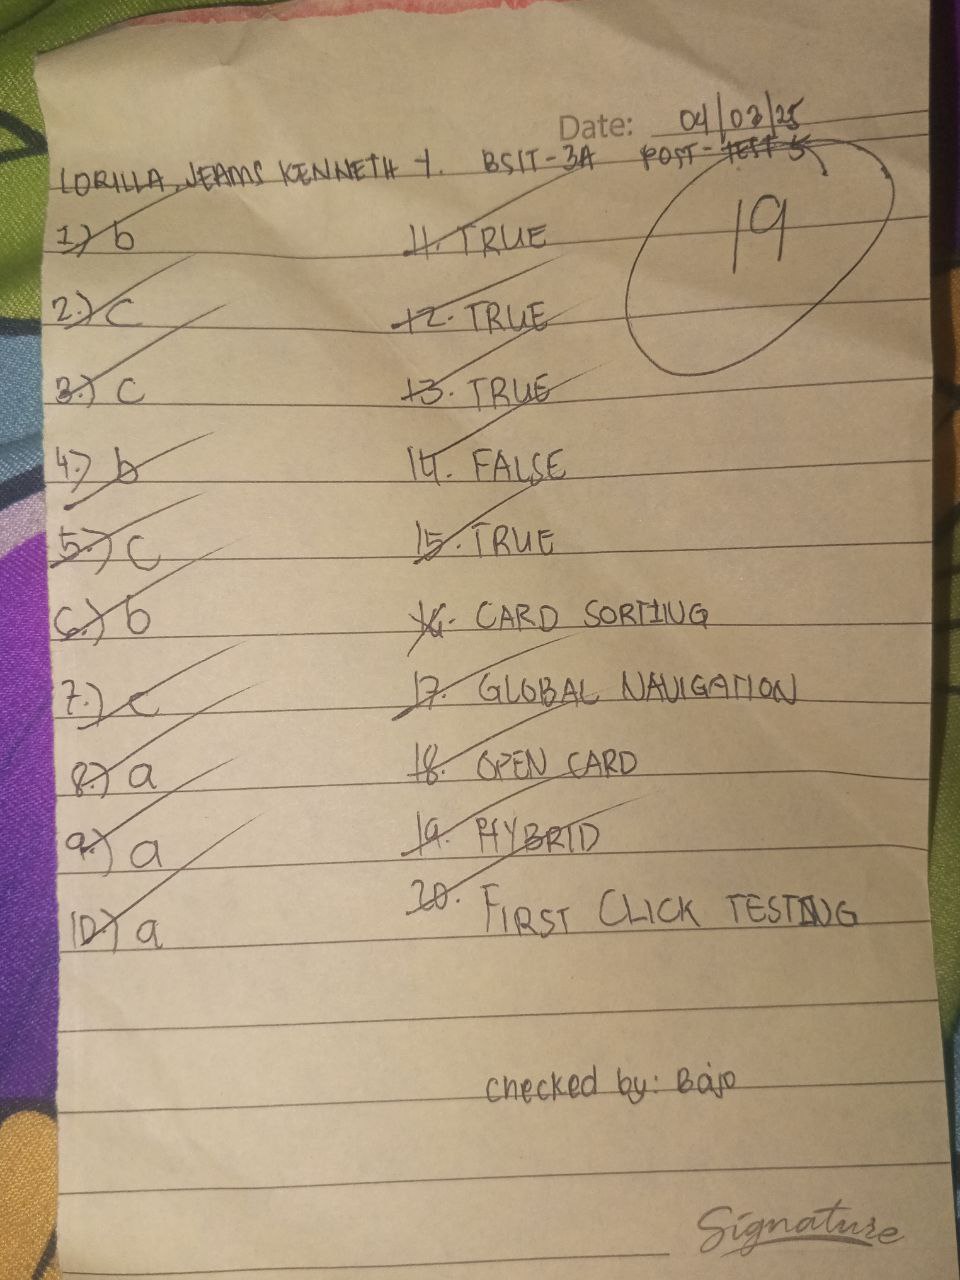 Date: 04/03/25
LORILLA, JEAMS KENNETH Y. BSIT-3A POST-TEST 5
19
1.) b
2.) c
3.) c
4.) b
5.) c
6.) b
7.) c
8.) a
9.) a
10.) a
11. TRUE
12. TRUE
13. TRUE
14. FALSE
15. TRUE
16. CARD SORTING
17. GLOBAL NAVIGATION
18. OPEN CARD
19. HYBRID
20. FIRST CLICK TESTING
checked by: Bajo
Signature